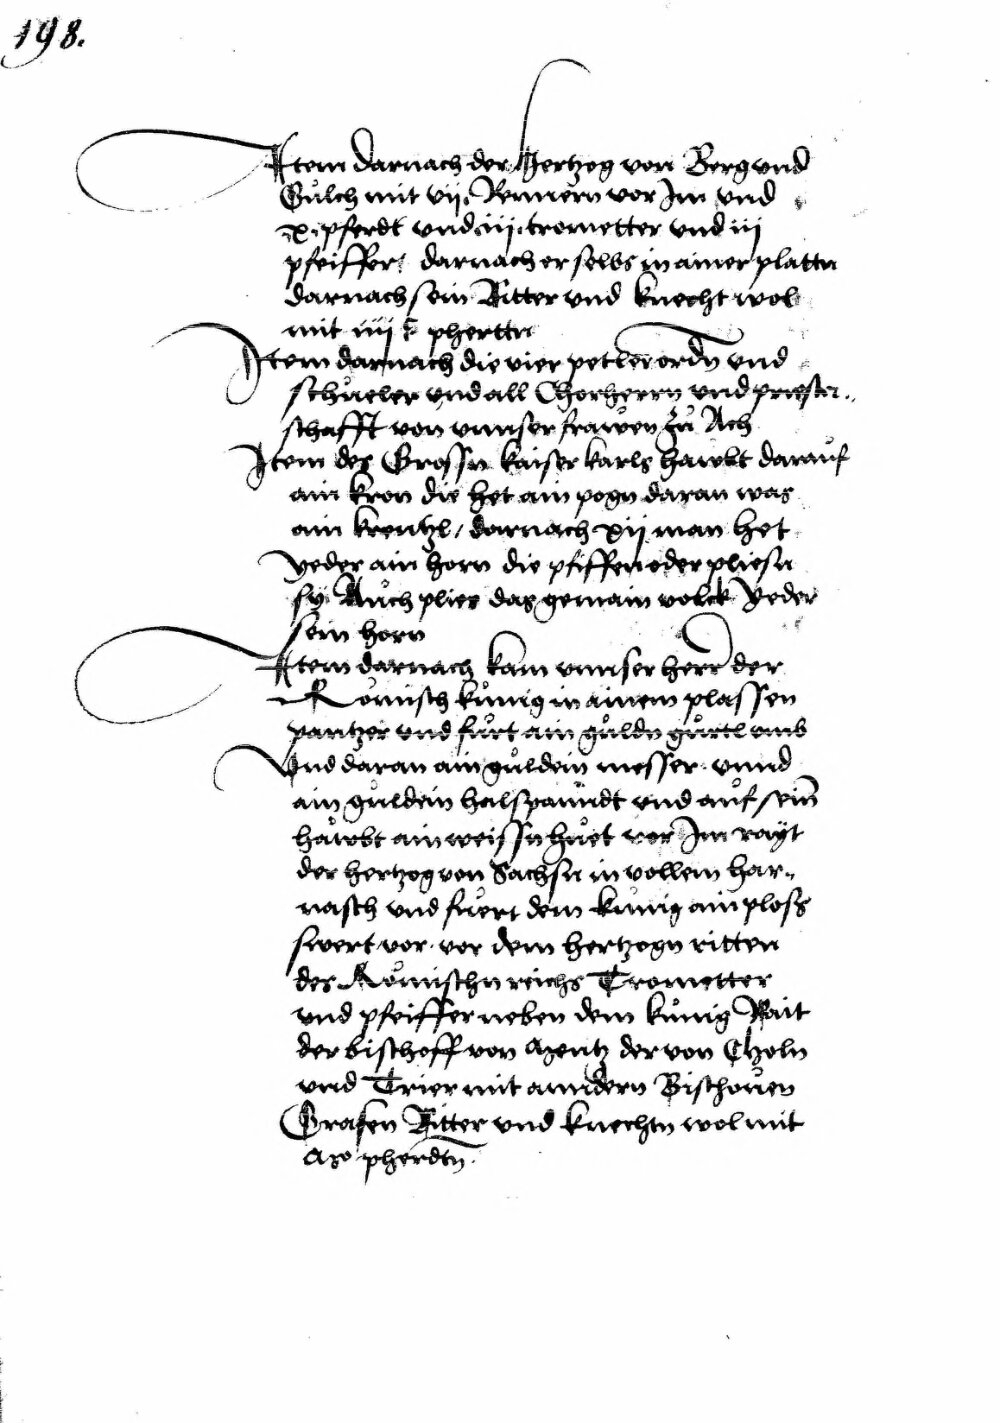 198.
Item darnach der Hertzog von Berg vnd
Gůlch mit vij. Rennern vor Im vnd
x. pferdt vnd iiij. trometter vnd iij
pfeiffer, darnach er selbs in ainer plattn
darnach sein Ritter vnd knecht wol
mit iiij c pherttn
Item darnach die vier petler ordn vnd
schueler vnd all Chorherrn vnd priester„
schafft von vnnser frawen zů Ach
Item des Grossn kaiser karls hawbt darauf
ain kron die het ain pogn daran was
ain kreutzl, darnach xij man het
yeder ain horn die pfiffen oder pliesn
sy. Auch plies das gemain volck yeder
sein horn
Item darnach kam vnnser herr der
Römisch künig in ainem plassen
pantzer vnd fůrt ain guldn gürtl vmb
vnd daran ain guldein messer. vnnd
ain guldein halspanndt vnd auf sein
hawbt ain weissn huet vor Im rayt
der hertzog von Sachsn in vollem har„
nasch vnd fuert dem künig ain ploss
swert vor. vor dem hertzogn ritten
des Römischn reichs Trometter
vnd pfeiffer neben dem künig Rait
der bischoff von Mentz der von Choln
vnd Trier mit anndern Bischouen
Grafen Ritter vnd knechtn wol mit
pherdtn.